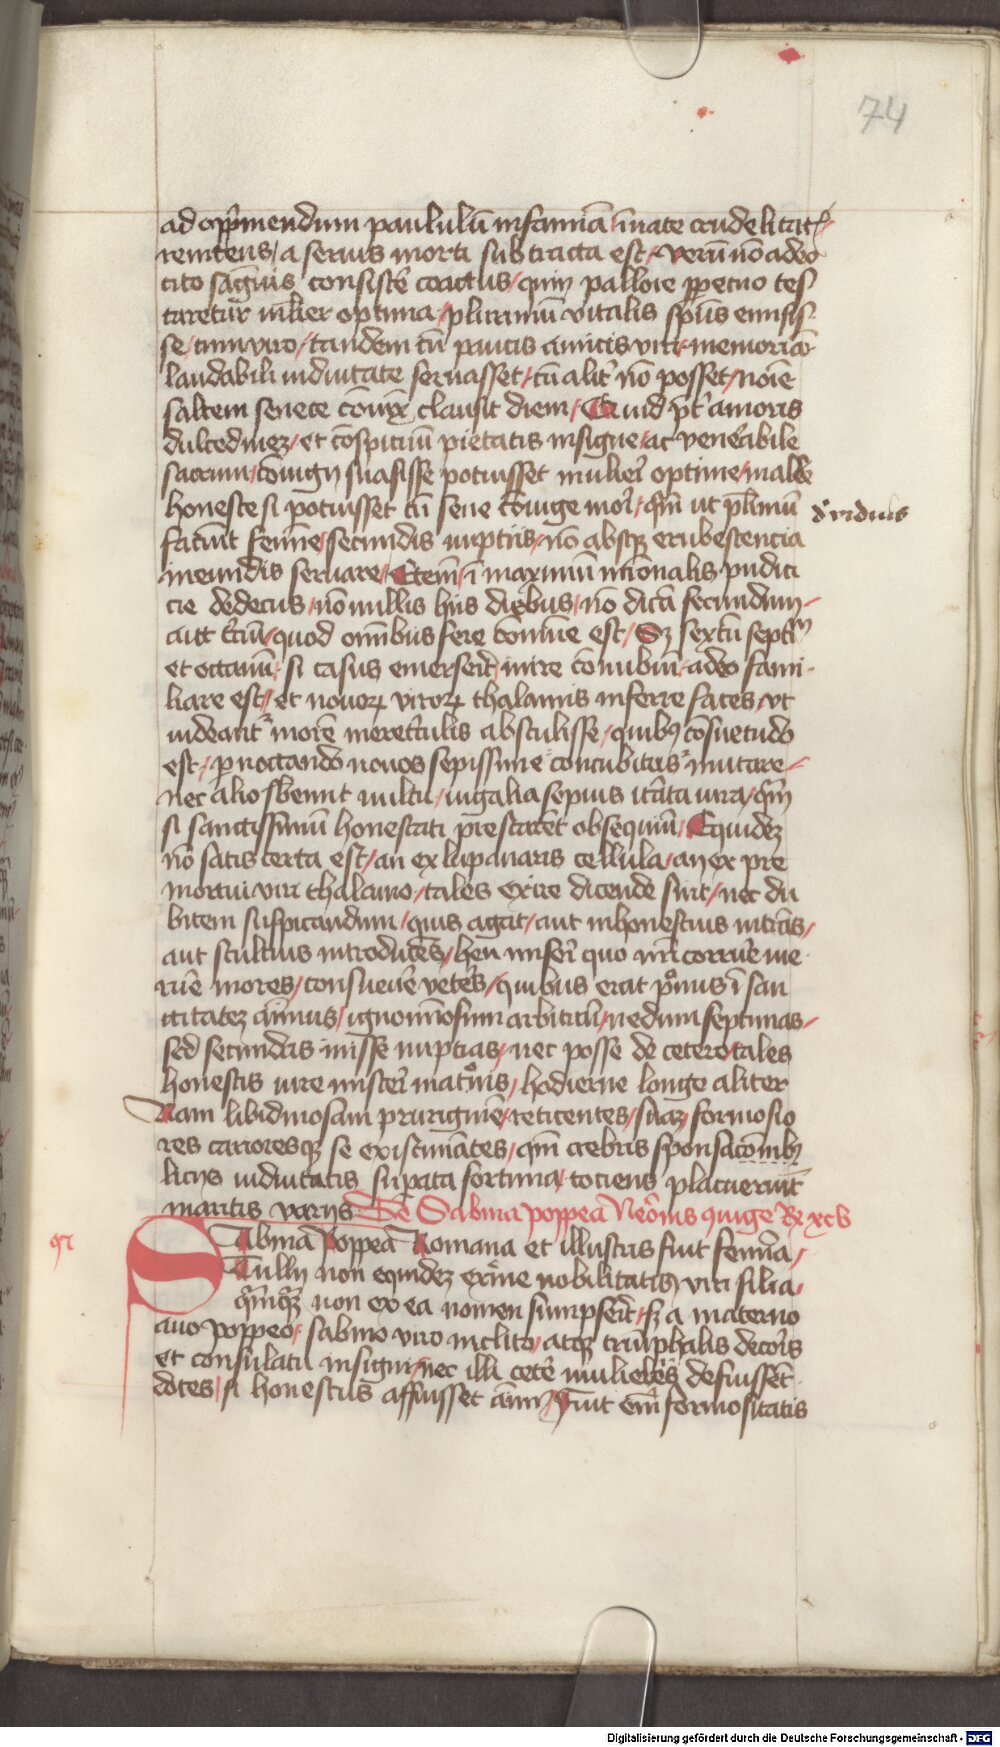 74
ad opp̄mendum paululū infamiā īnate crudelitatꝭ
renitens / a seruis morti subtracta est / verū nō adeo
cito sāguis consistē coactus / quin pallore ꝑpetuo tes
taretur mulier optima / plurimū vitalis sp̄us emisis
se / cum viro / tandem cū paucis annis viri memoriā
laudabili viduitate seruasset / cū alit̄ nō posset / noīe
saltem senece cōiux clausit diem / Quid p̄t amoris
dulcedinez / et cōspicuū pietatis insigne / ac venerabile
sacrum / cōiugij suasisse potuisset mulieri optime / malle
honeste si potuisset cū sene cōiuge mori / qm̄ ut pl̄imū
d̓ viduis
faciūt femīe / secundis nuptiis / nō absqꝫ erubescencia
ineundis seruare / Etenī / ī maximū m̄ronalis pudici
cie dedecus / nō nullis hijs diebus / nō dicā secundum
aut t̄ciū / quod om̄ibus fere cōmūe est / Sꝫ sextū septīm
et octauū / si casus emerserit / inire cōnubiū / adeo fami
liare est / et nouoꝝ viroꝝ thalamis inferre faces / ut
uideant᷑ morē meret̄culis abstulisse / quibꝰ cōsuetudo
est / ꝑnoctando nouos sepissime concubitus mutare /
nec alio s̄beunt uultu / iugalia sepius it̄ata iura / qm̄
si sanctissimū honestati prestarēt obsequiū / Equidez
nō satis certa est / an ex lupanaris cellula / an ex pre
mortui viri thalamo / tales exire dicende sint / nec du
bitem suspicandum / quis agat / aut inhonestius intrās /
aut stultius introducēs / heu miseri quo nr̄i corruēre me
ruē mores / consueuēre vetēs / quibus erat p̄nus ī san
ctitatez animus / ignominiosum arbitratū / nedum septimas /
sed secundas inisse nuptias / nec posse de cetero tales
honestis iure misceri matronis / hodierne longe aliter
Nam libidinosam pruriginē reticentes / suaꝫ formosio
res cariores qꝫ se existimātes / qm̄ crebris sponsacōnibꝰ
licijs viduitatis suꝑata fortuna / tociens placuerunt
maritis varijs De Sabina poppea Neronis ɔiuge Re xcv
97
Sabina Poppea Romana et illustris fuit femīa /
Tullij non equidez exīmie nobilitatis viri filia /
qm̄qꝫ non ex ea nomen sumpserit / sꝫ a materno
auo poppeo / sabino viro inclito / atqꝫ triūphalis decoris
et consulatu insigni / nec illi ceterē mulieres defuissent
dotes / si honestus affuisset animus / Fuit enī formositatis
Digitalisierung gefördert durch die Deutsche Forschungsgemeinschaft - DFG